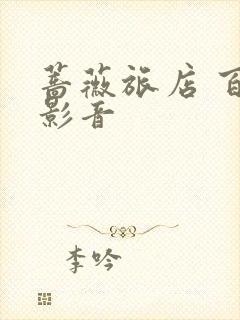 蔷薇旅店 百
影音
李吟